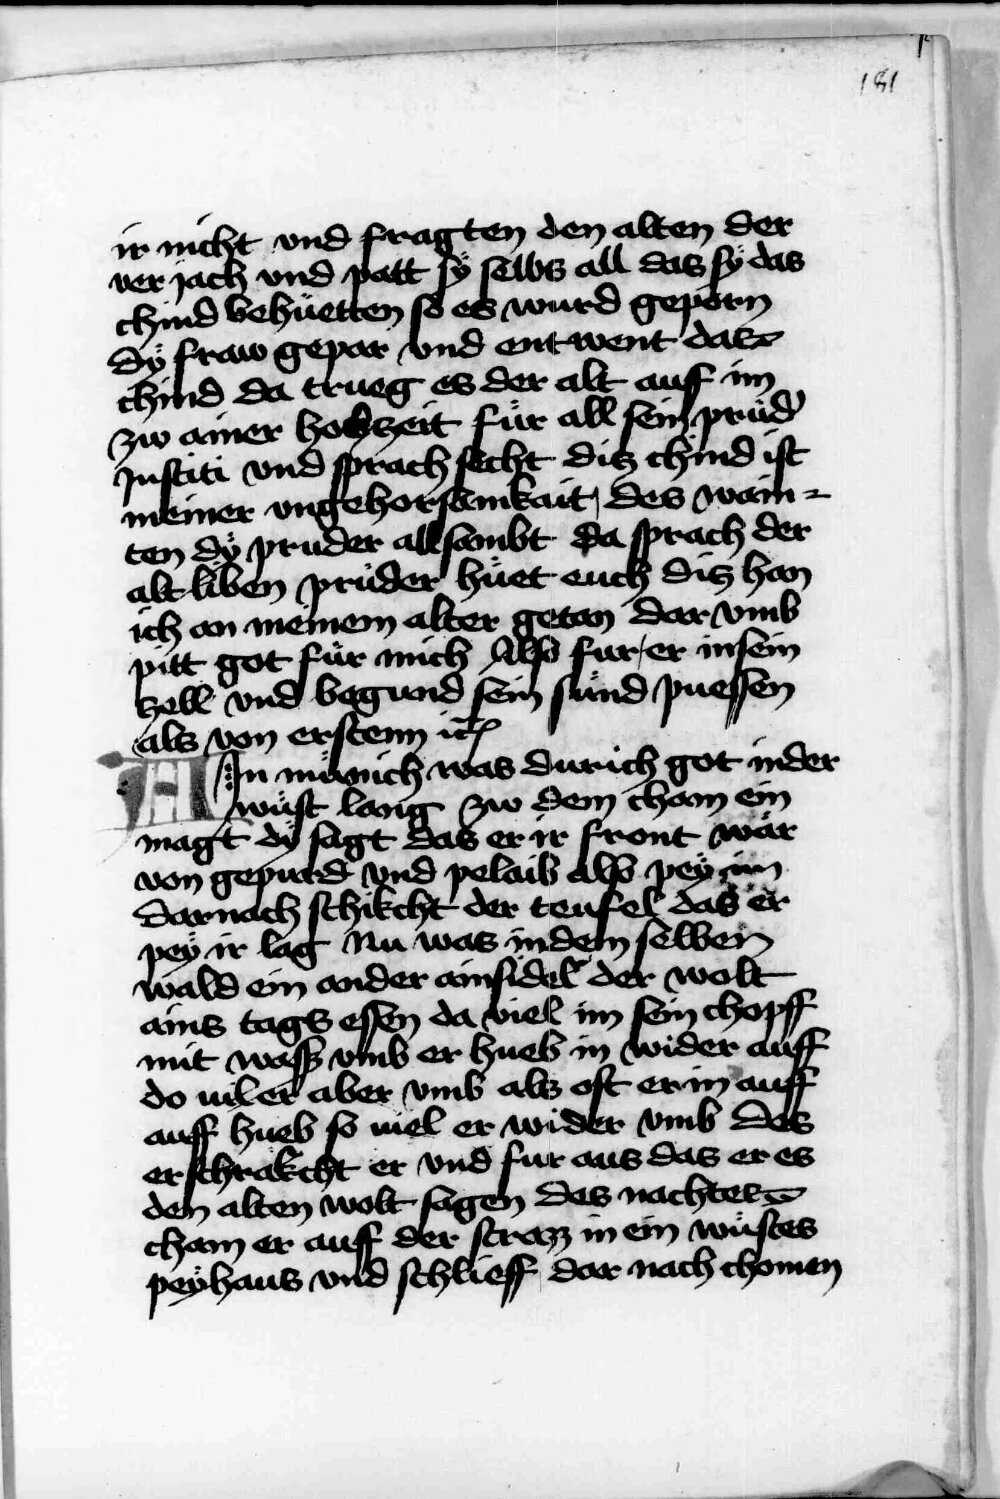 181
ir nicht vnd fragten den alten der
ver jach vnd patt sÿ selbs all das sÿ das
chind behüetten so es wurd geporn
dÿ fraw gepar vnd entwent das
chind da trueg es der alt auff im
zw ainer hochzeit für all sein prüder
Justiti vnd sprach secht ditz chind ist
meiner vngehorsamkait des wain-
ten dÿ prüder allsambt da sprach der
alt liben prüder hüet euch ditz han
ich an meinem alter getan dar vmb
pitt got für mich Also fur er in sein
zell vnd begund sein sünd puessen
als von erstem
Ain münich was durich got in der
wüst lang zw dem cham ein
magt dÿ sagt das er ir freunt wär
von gepurd vnd pelaib also peÿ im
darnach schikcht der teufel das er
peÿ ir lag Nu was in dem selben
wald ein ander ainsidel der wolt
ains tags essen da viel im sein chopff
mit wasser vmb er hueb in wider auff
do viel er aber vmb als oft er in auff
auff hueb so viel er wider vmb Des
erschrakcht er vnd fur aus das er es
den alten wolt sagen des nachtes
cham er auff der strazz in ein wüstes
peÿhaus vnd schlieff dar nach chomen